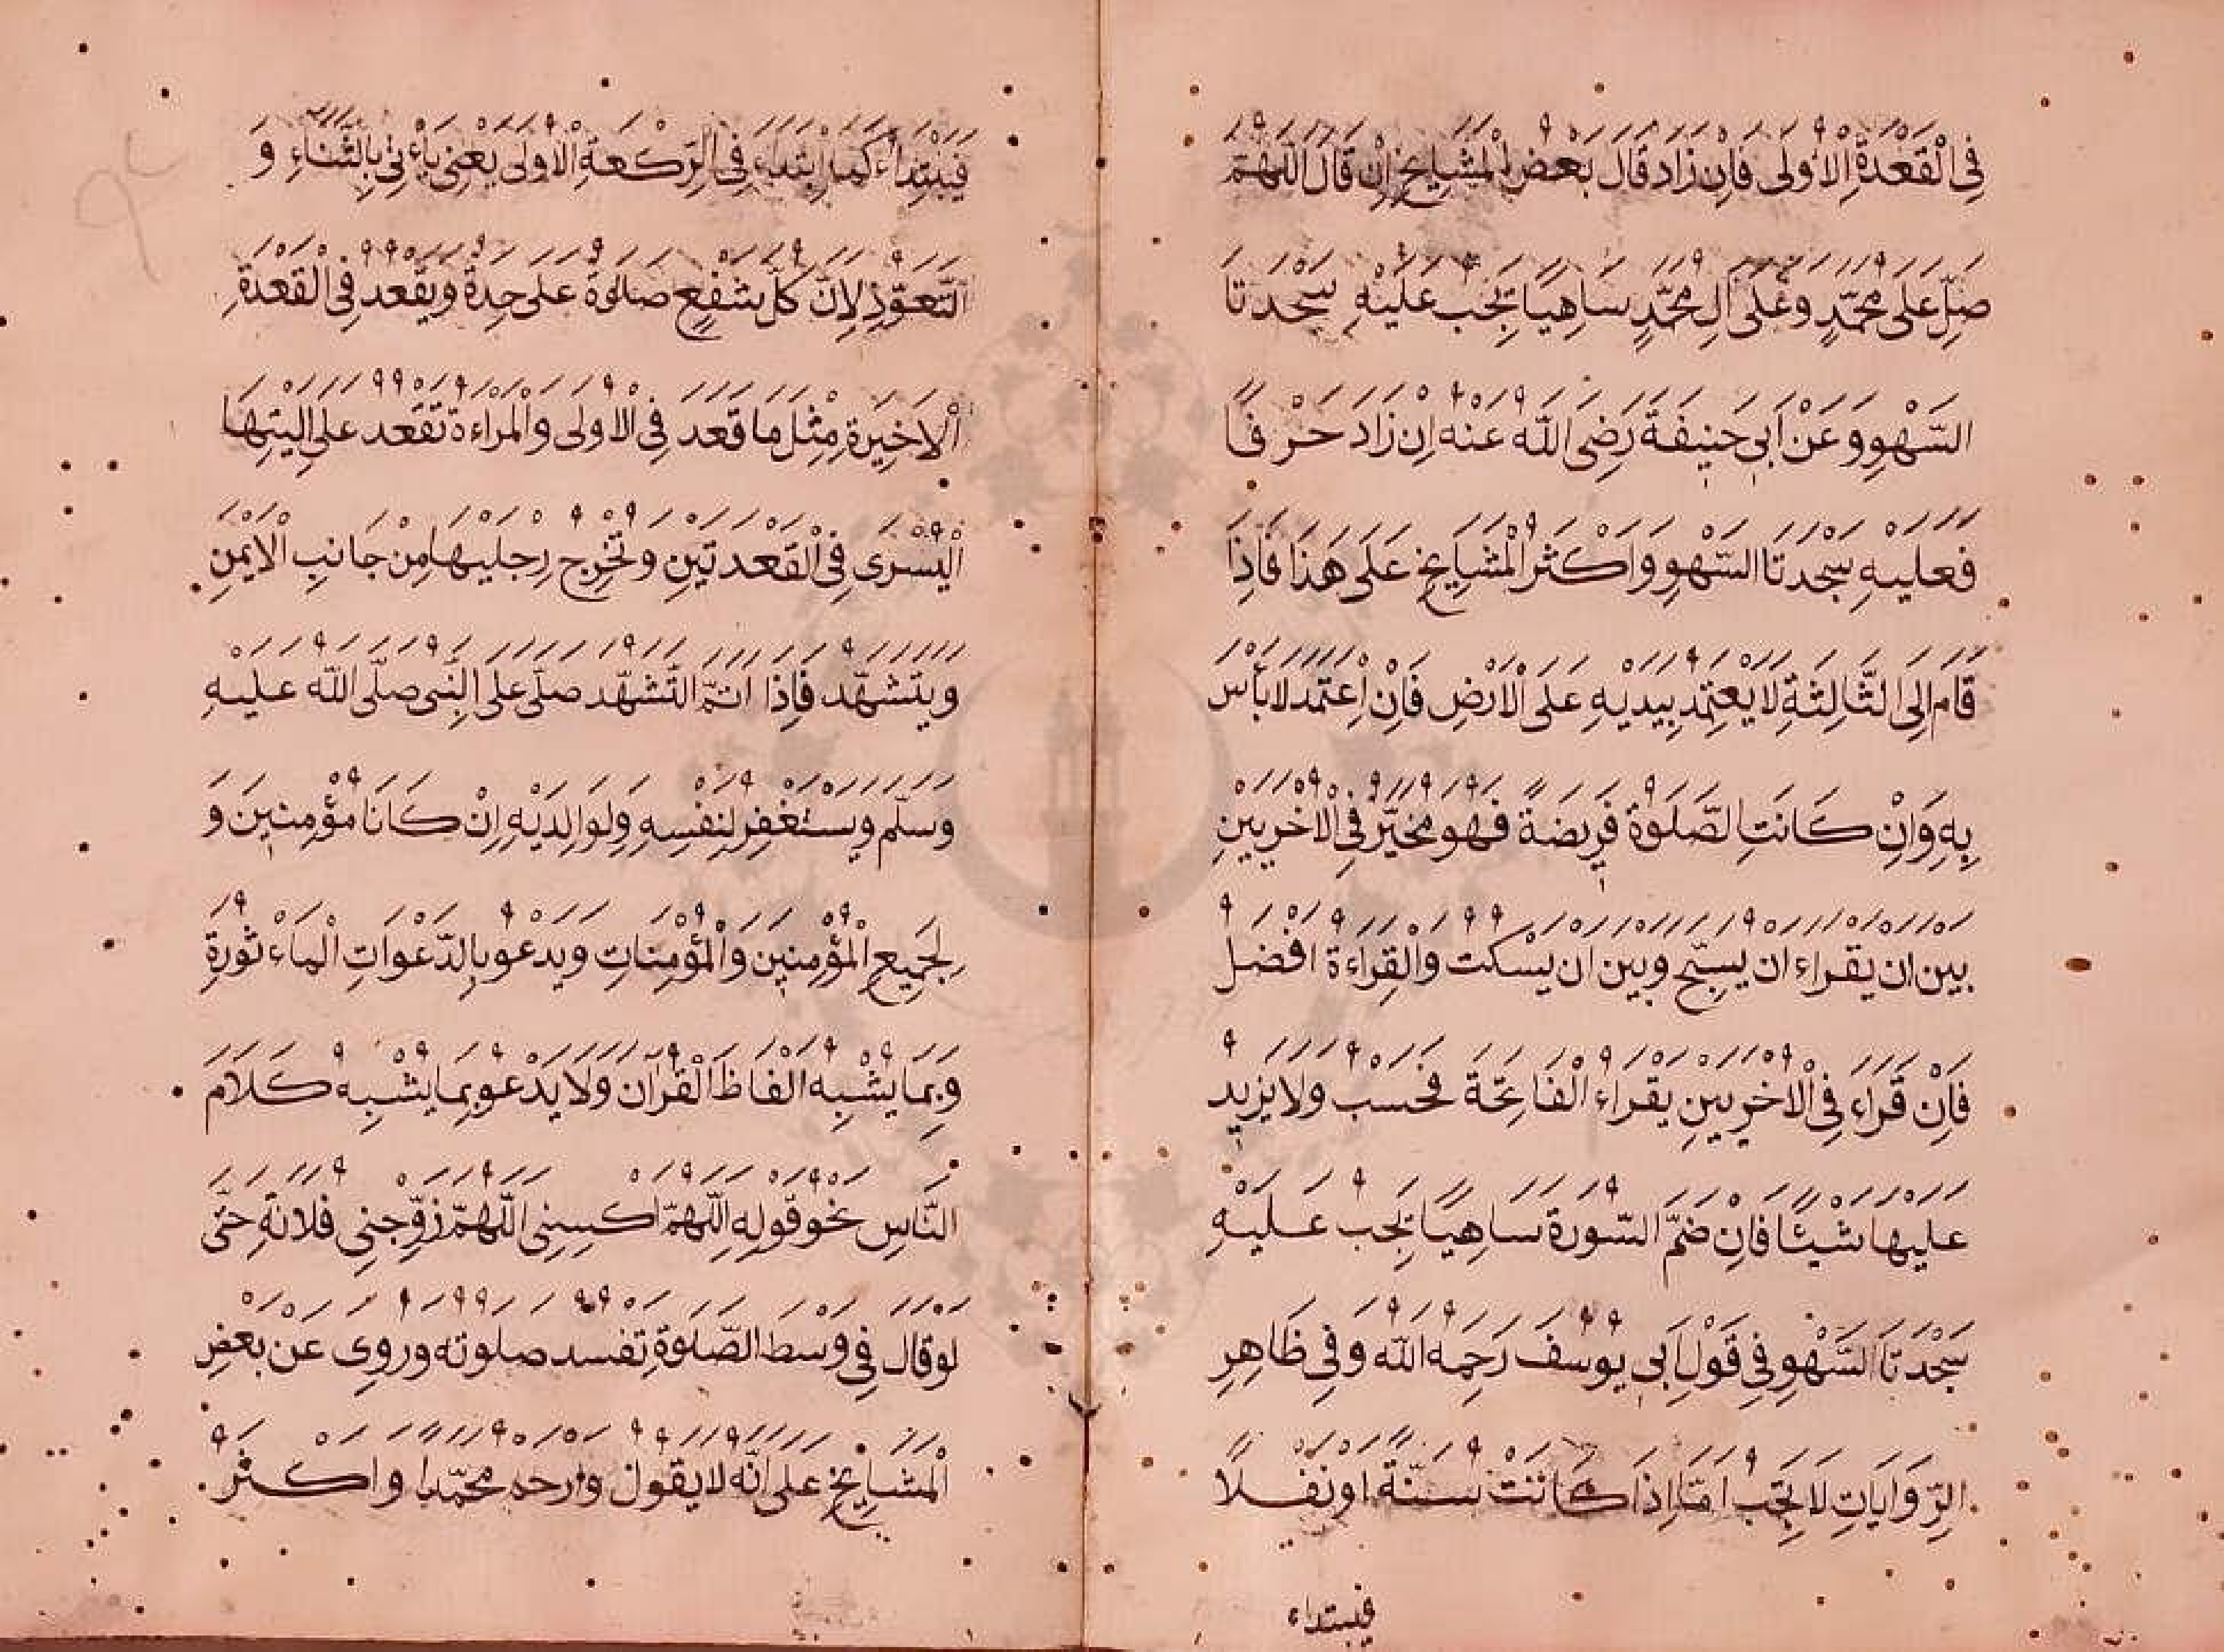 فِى الْقَعْدَةِ الْاُولَى فَاِنْ زَادَ قَالَ بَعْضُ الْمَشَايِخِ اِنْ قَالَ اللّٰهُمَّ
صَلِّ عَلَى مُحَمَّدٍ وَعَلَى اٰلِ مُحَمَّدٍ سَاهِيًا تَجِبُ عَلَيْهِ سَجْدَتَا
السَّهْوِ وَعَنْ اَبِى حَنِيفَةَ رَضِىَ اللّٰهُ عَنْهُ اِنْ زَادَ حَرْفًا
فَعَلَيْهِ سَجْدَتَا السَّهْوِ وَاَكْثَرُ الْمَشَايِخِ عَلَى هَذَا فَاِذَا
قَامَ اِلَى الثَّالِثَةِ لَا يَعْتَمِدُ بِيَدَيْهِ عَلَى الْاَرْضِ فَاِنْ اِعْتَمَدَ لَا بَأْسَ
بِهِ وَاِنْ كَانَتِ الصَّلَوٰةُ فَرِيضَةً فَهُوَ مُخَيَّرٌ فِى الْاُخْرَيَيْنِ
بَيْنَ اَنْ يَقْرَاءَ اَنْ يُسَبِّحَ وَبَيْنَ اَنْ يَسْكُتَ وَالْقِرَاءَةُ اَفْضَلُ
فَاِنْ قَرَاءَ فِى الْاُخْرَيَيْنِ يَقْرَاءُ الْفَاتِحَةَ فَحَسْبُ وَلَا يَزِيدُ
عَلَيْهَا شَيْئًا فَاِنْ ضَمَّ السُّورَةَ سَاهِيًا تَجِبُ عَلَيْهِ
سَجْدَتَا السَّهْوِ فِى قَوْلِ اَبِى يُوسُفَ رَحِمَهُ اللّٰهُ وَفِى ظَاهِرِ
الرِّوَايَاتِ لَا يَجِبُ اَمَّا اِذَا كَانَتْ سُنَّةً اَوْ نَفْلًا
فيبتداء
فَيَبْتَدِاءُ كَمَا اِبْتَدَاءَ فِى الرَّكْعَةِ الْاُولَى يَعْنِى يَاْتِى بِالثَّنَاءِ وَ
التَّعَوُّذِ لِاَنَّ كُلَّ شَفْعٍ صَلٰوةٌ عَلَى حِدَةٍ وَيَقْعُدُ فِى الْقَعْدَةِ
الْاَخِيرَةِ مِثْلَ مَا قَعَدَ فِى الْاُولَى وَالْمَرْاءَةُ تَقْعُدُ عَلَى اِلْيَتِهَا
الْيُسْرَى فِى الْقَعْدَتَيْنِ وَتُخْرِجُ رِجْلَيْهَا مِنْ جَانِبِ الْاَيْمَنِ
وَيَتَشَهَّدُ فَاِذَا اَتَمَّ التَّشَهُّدَ صَلَّى عَلَى النَّبِىِّ صَلَّى اللّٰهُ عَلَيْهِ
وَسَلَّمَ وَيَسْتَغْفِرُ لِنَفْسِهِ وَلِوَالِدَيْهِ اِنْ كَانَا مُؤْمِنَيْنِ وَ
لِجَمِيعِ الْمُؤْمِنِينَ وَالْمُؤْمِنَاتِ وَيَدْعُو بِالدَّعَوَاتِ الْمَاءْثُورَةِ
وَبِمَا يُشْبِهُ اَلْفَاظَ الْقُرْاٰنِ وَلَا يَدْعُو بِمَا يُشْبِهُ كَلَامَ
النَّاسِ نَحْوَ قَوْلِهِ اَللّٰهُمَّ اكْسِنِى اَللّٰهُمَّ زَوِّجْنِى فُلَانَةَ حَتَّى
لَوْ قَالَ فِى وَسَطِ الصَّلَوٰةِ تَفْسُدُ صَلٰوتُهُ وَرُوِىَ عَنْ بَعْضِ
الْمَشَايِخِ عَلَى اَنَّهُ لَا يَقُولُ وَارْحَمْ مُحَمَّدًا وَاَكْثَرُ